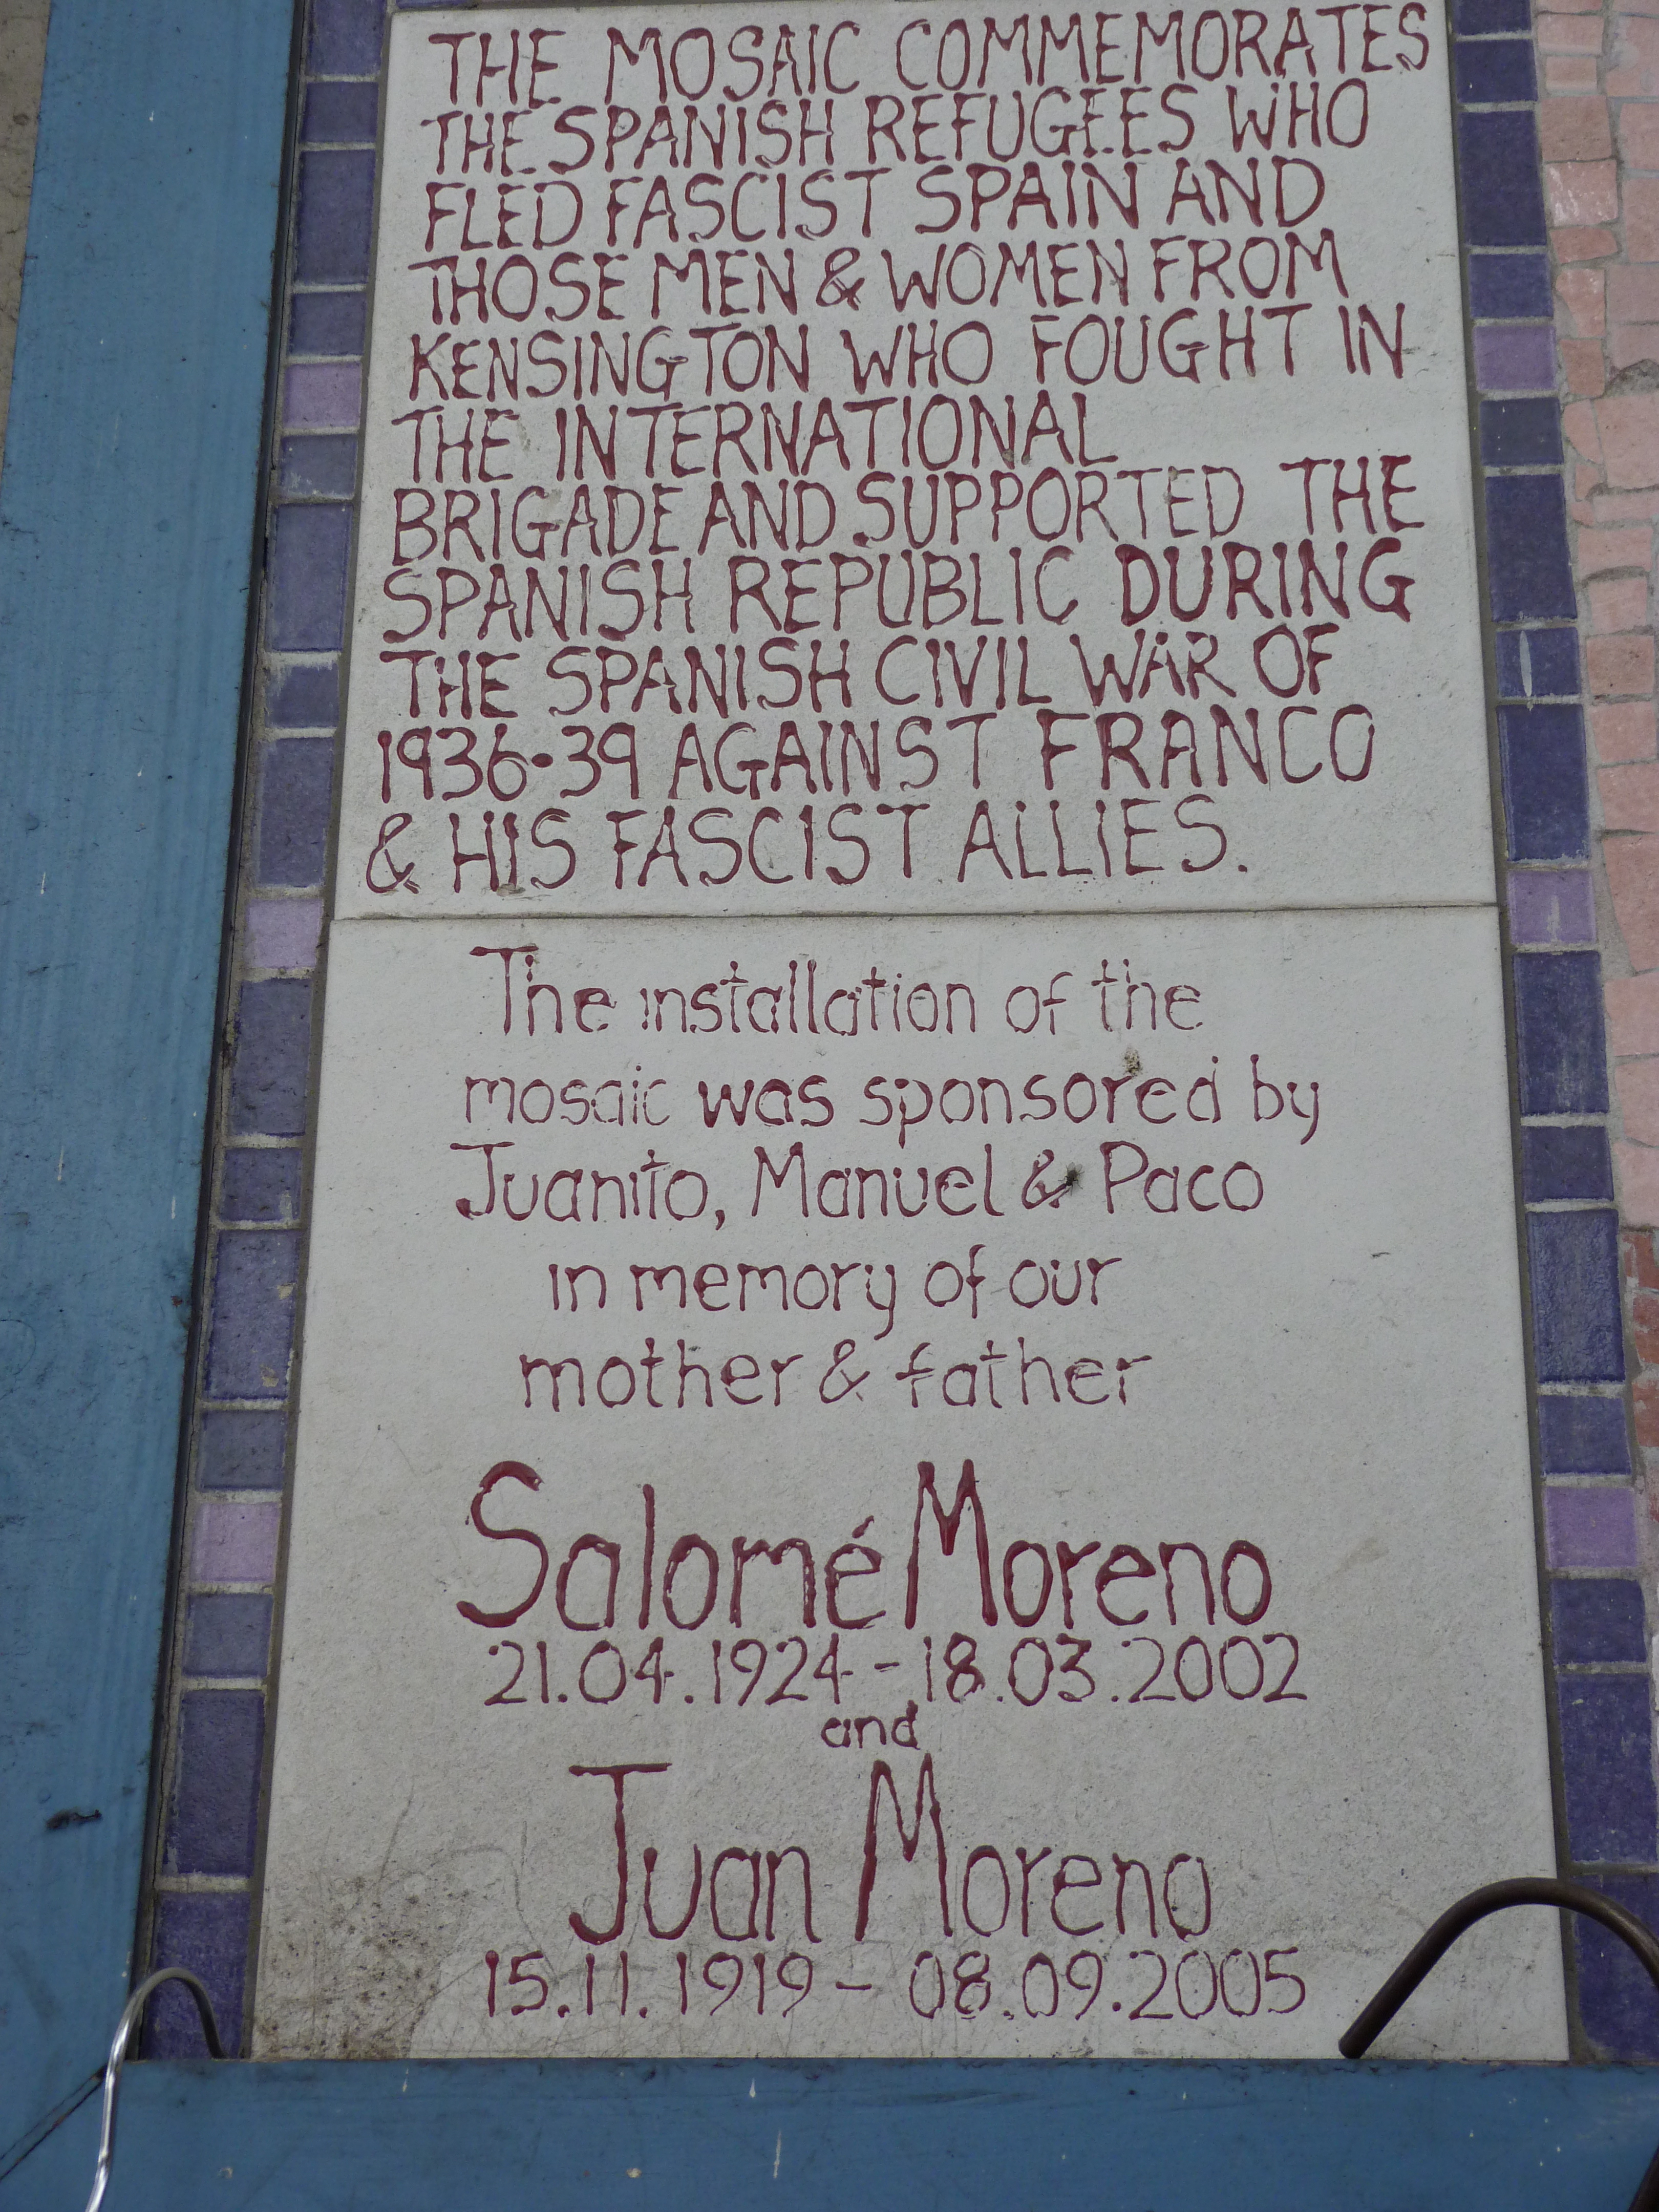 THE MOSAIC COMMEMORATES
THE SPANISH REFUGEES WHO
FLED FASCIST SPAIN AND
THOSE MEN & WOMEN FROM
KENSINGTON WHO FOUGHT IN
THE INTERNATIONAL
BRIGADE AND SUPPORTED THE
SPANISH REPUBLIC DURING
THE SPANISH CIVIL WAR OF
1936-39 AGAINST FRANCO
& HIS FASCIST ALLIES.
The installation of the
mosaic was sponsored by
Juanito, Manuel & Paco
in memory of our
mother & father
Salomé Moreno
21.04.1924 - 18.03.2002
and
Juan Moreno
15.11.1919 - 08.09.2005